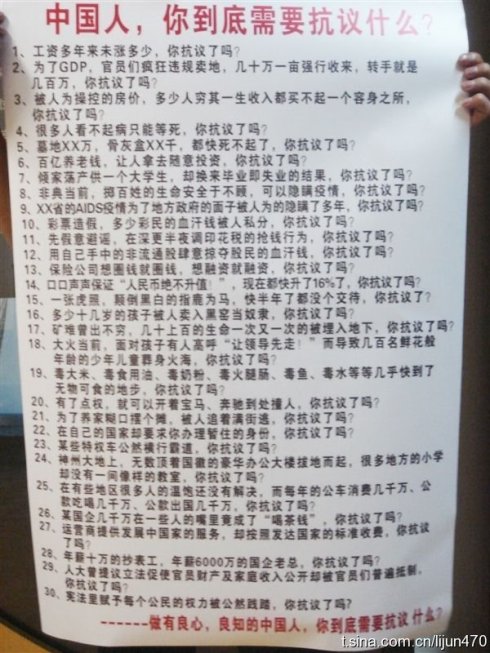 中国人，你到底需要抗议什么？
1、工资多年来未涨多少，你抗议了吗？
2、为了GDP，官员们疯狂违规卖地，几十万一亩强行收来，转手就是
几百万，你抗议了吗？
3、被人为操控的房价，多少人穷其一生收入都买不起一个容身之所，
你抗议了吗？
4、很多人看不起病只能等死，你抗议了吗？
5、墓地XX万，骨灰盒XX千，都快死不起了，你抗议了吗？
6、百亿养老钱，让人拿去随意投资，你抗议了吗？
7、倾家荡产供一个大学生，却换来毕业即失业的结果，你抗议了吗？
8、非典当前，掷百姓的生命安全于不顾，可以隐瞒疫情，你抗议了吗？
9、XX省的AIDS疫情为了地方政府的面子被人为的隐瞒了多年，你抗议了吗？
10、彩票造假，多少彩民的血汗钱被人私分，你抗议了吗？
11、先假意避谣，在深更半夜调印花税的抢钱行为，你抗议了吗？
12、用自己手中的非流通股肆意掠夺股民的血汗钱，你抗议了吗？
13、保险公司想圈钱就圈钱，想融资就融资，你抗议了吗？
14、口口声声保证“人民币绝不升值！”，现在都快升了16%了，你抗议了吗？
15、一张虎照，颠倒黑白的指鹿为马，快半年了都没个交待，你抗议了吗？
16、多少十几岁的孩子被人卖入黑窑当奴隶，你抗议了吗？
17、矿难曾出不穷，几十上百的生命一次又一次的被埋入地下，你抗议了吗？
18、大火当前，面对孩子有人高呼“让领导先走！”而导致几百名鲜花般
年龄的少年儿童葬身火海，你抗议了吗？
19、毒大米、毒食用油、毒奶粉、毒火腿肠、毒鱼、毒水等等几乎快到了
无物可食的地步，你抗议了吗？
20、有了点权，就可以开着宝马、奔驰到处撞人，你抗议了吗？
21、为了养家糊口摆个摊，被人追着满街逃，你抗议了吗？
22、在自己的国家却要求你办理暂住的身份，你抗议了吗？
23、某些特权车公然横行霸道，你抗议了吗？
24、神州大地上，无数顶着国徽的豪华办公大楼拔地而起，很多地方的小学
却没有一间像样的教室，你抗议了吗？
25、在有些地区很多人的温饱还没有解决，而每年的公车消费几千万、公
款吃喝几千万、公款出国几千万，你抗议了吗？
26、某国企几千万在一些人的嘴里竟成了“喝茶钱”，你抗议了吗？
27、运营商提供发展中国家的服务，却按照发达国家的标准收费，你抗议
了吗？
28、年薪十万的抄表工，年薪6000万的国企老总，你抗议了吗？
29、人大曾提议立法促使官员财产及家庭收入公开却被官员们普遍抵制，
你抗议了吗？
30、宪法里赋予每个公民的权力被公然践踏，你抗议了吗？
-------做有良心，良知的中国人，你到底需要抗议什么？
t.sina.com.cn/lijun470